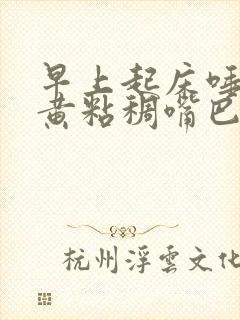 早上起床唾
黄粘稠嘴巴
杭州浮雲文化